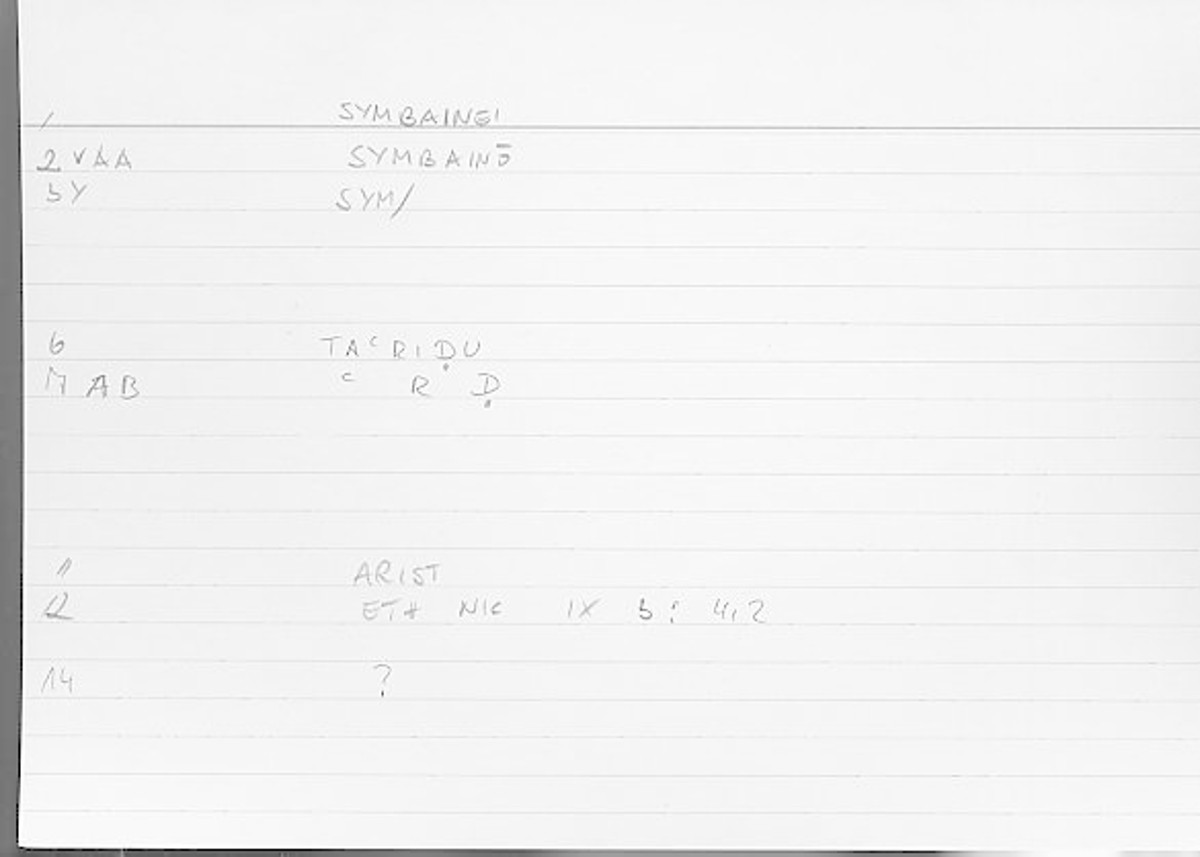 1 SYMBAINEI
2 VAA SYMBAINŌ
3 Y SYM/
6 TAᶜRIḌU
M AB ᶜ R Ḍ
1 ARIST
12 ETH NIC IX 5: 4,2
14 ?